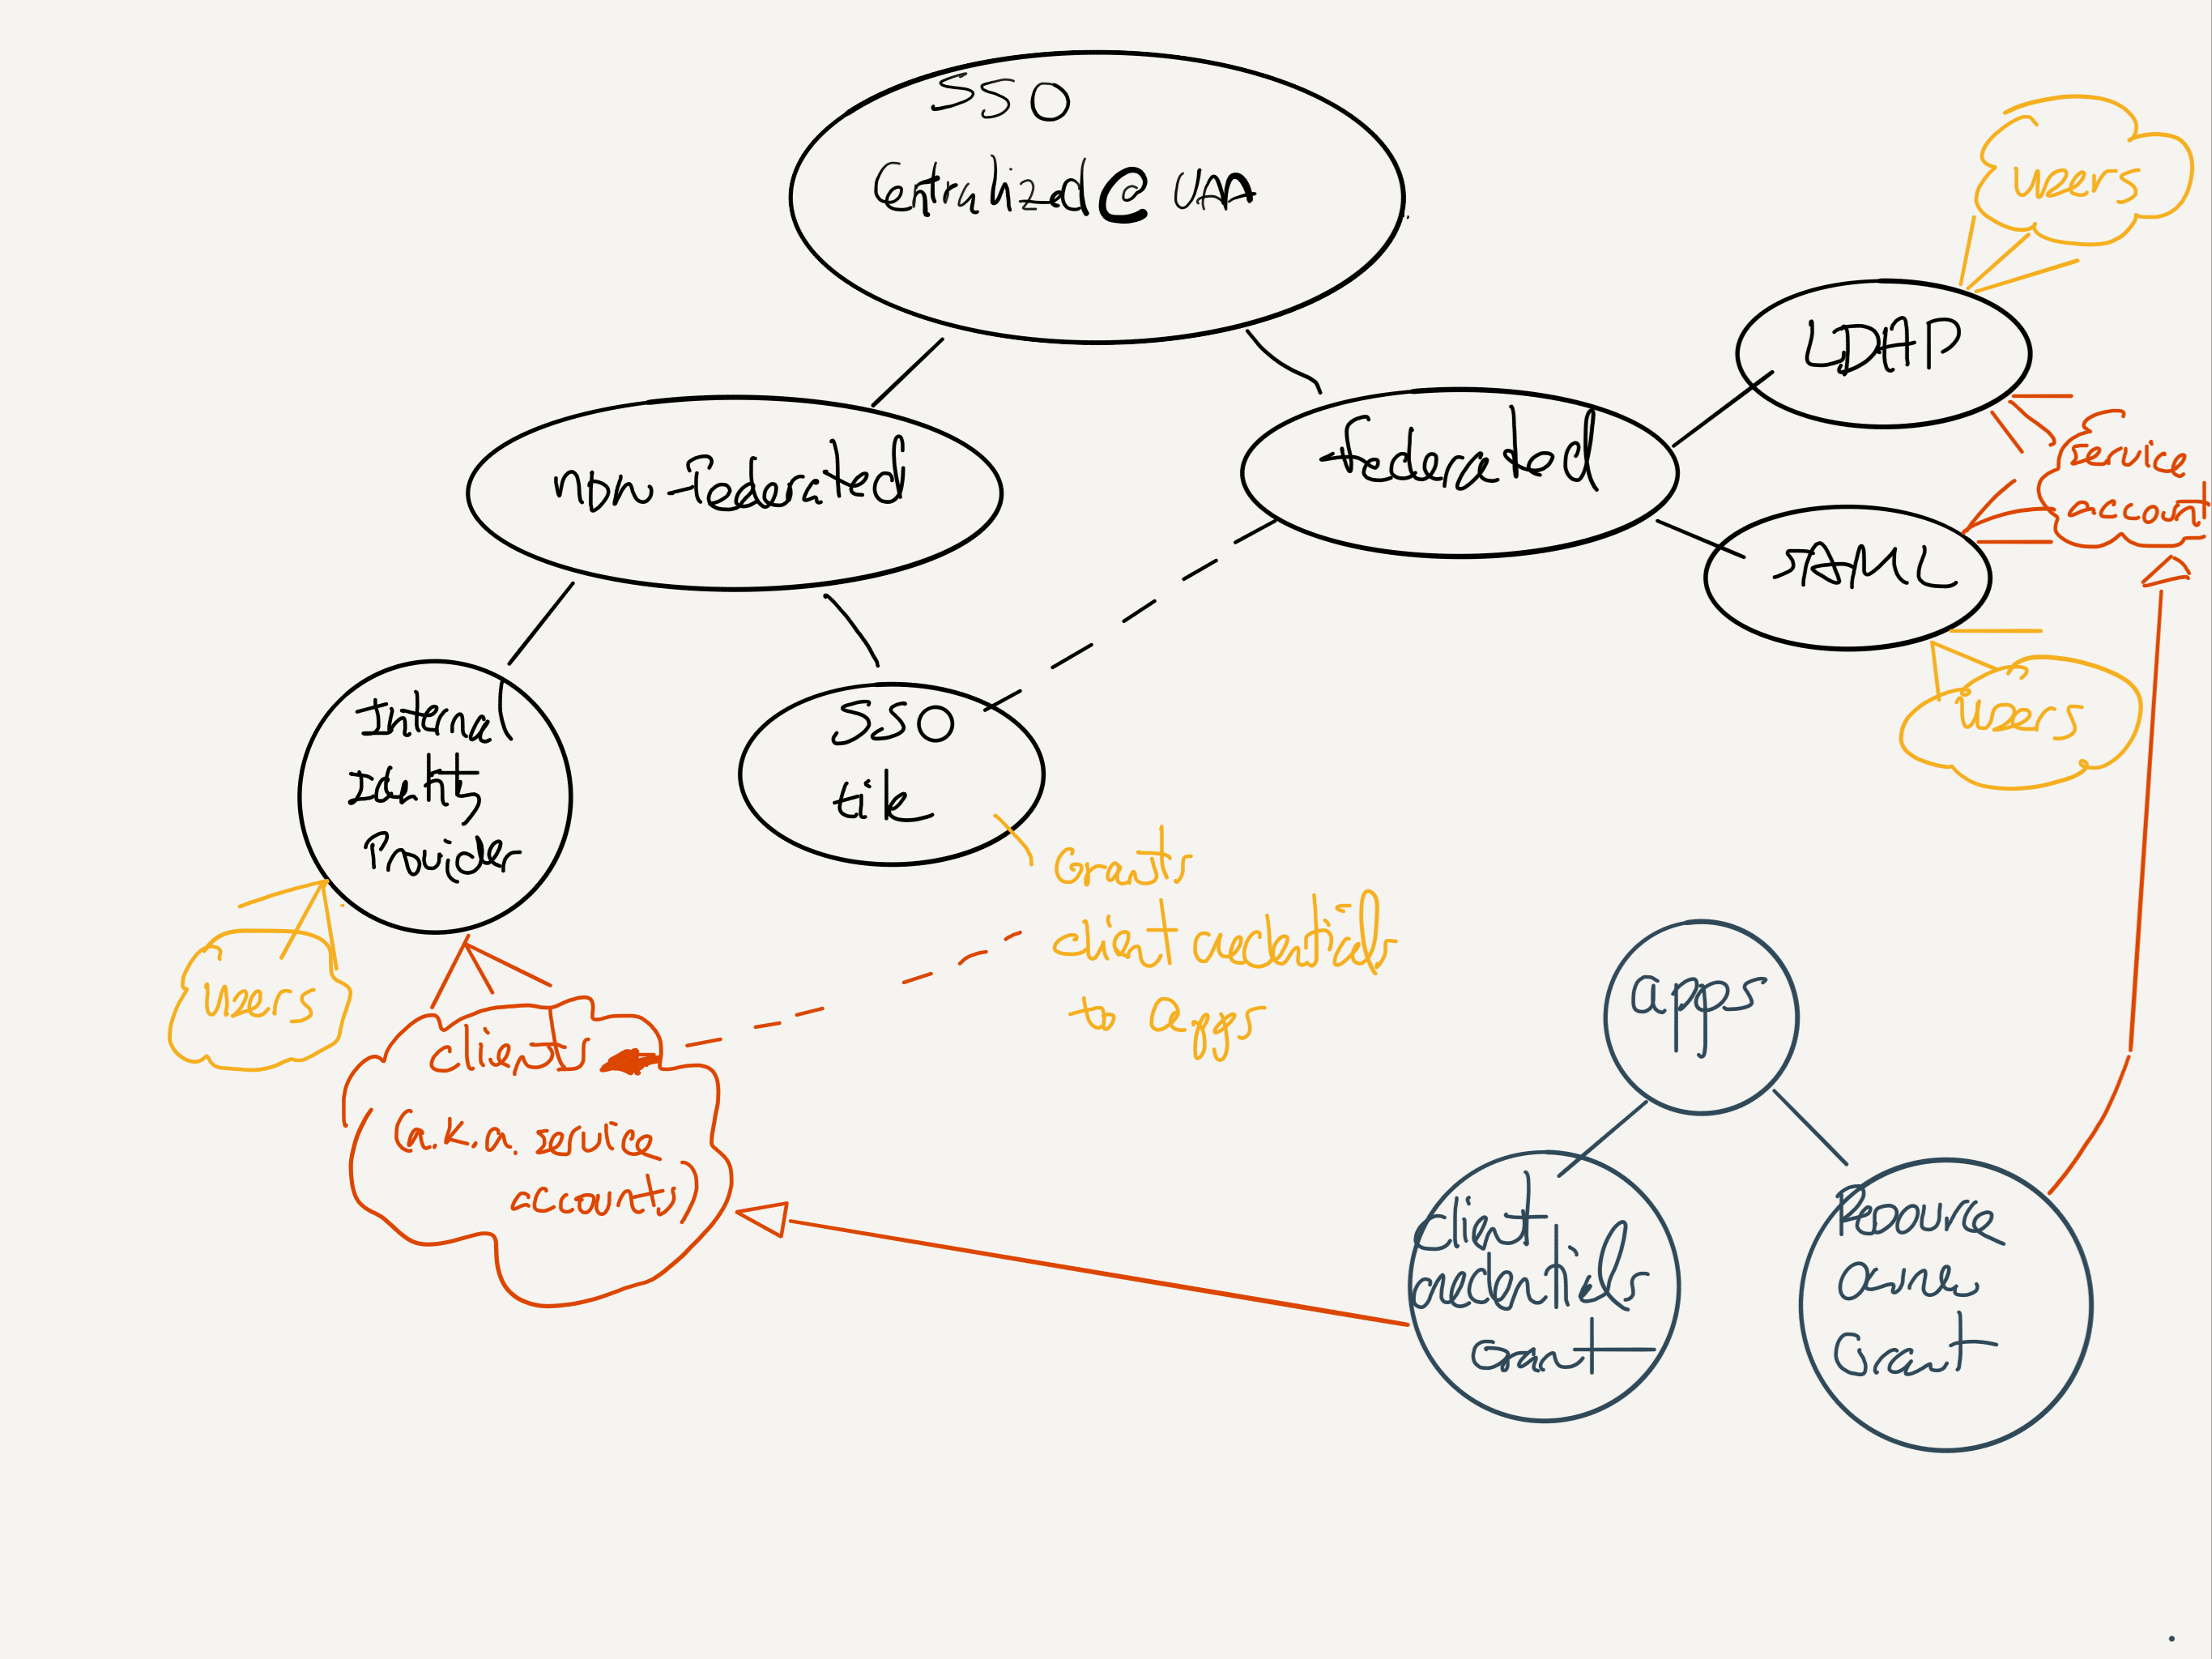 SSO
Centralized @ UAA
users
LDAP
non-Federated
federated
service
account
SAML
Internal
Identity
Provider
SSO
users
Grants
client credentials
to apps
users
clients
(a.k.a. service
accounts)
apps
client
credentials
Grant
Resource
Owner
Grant